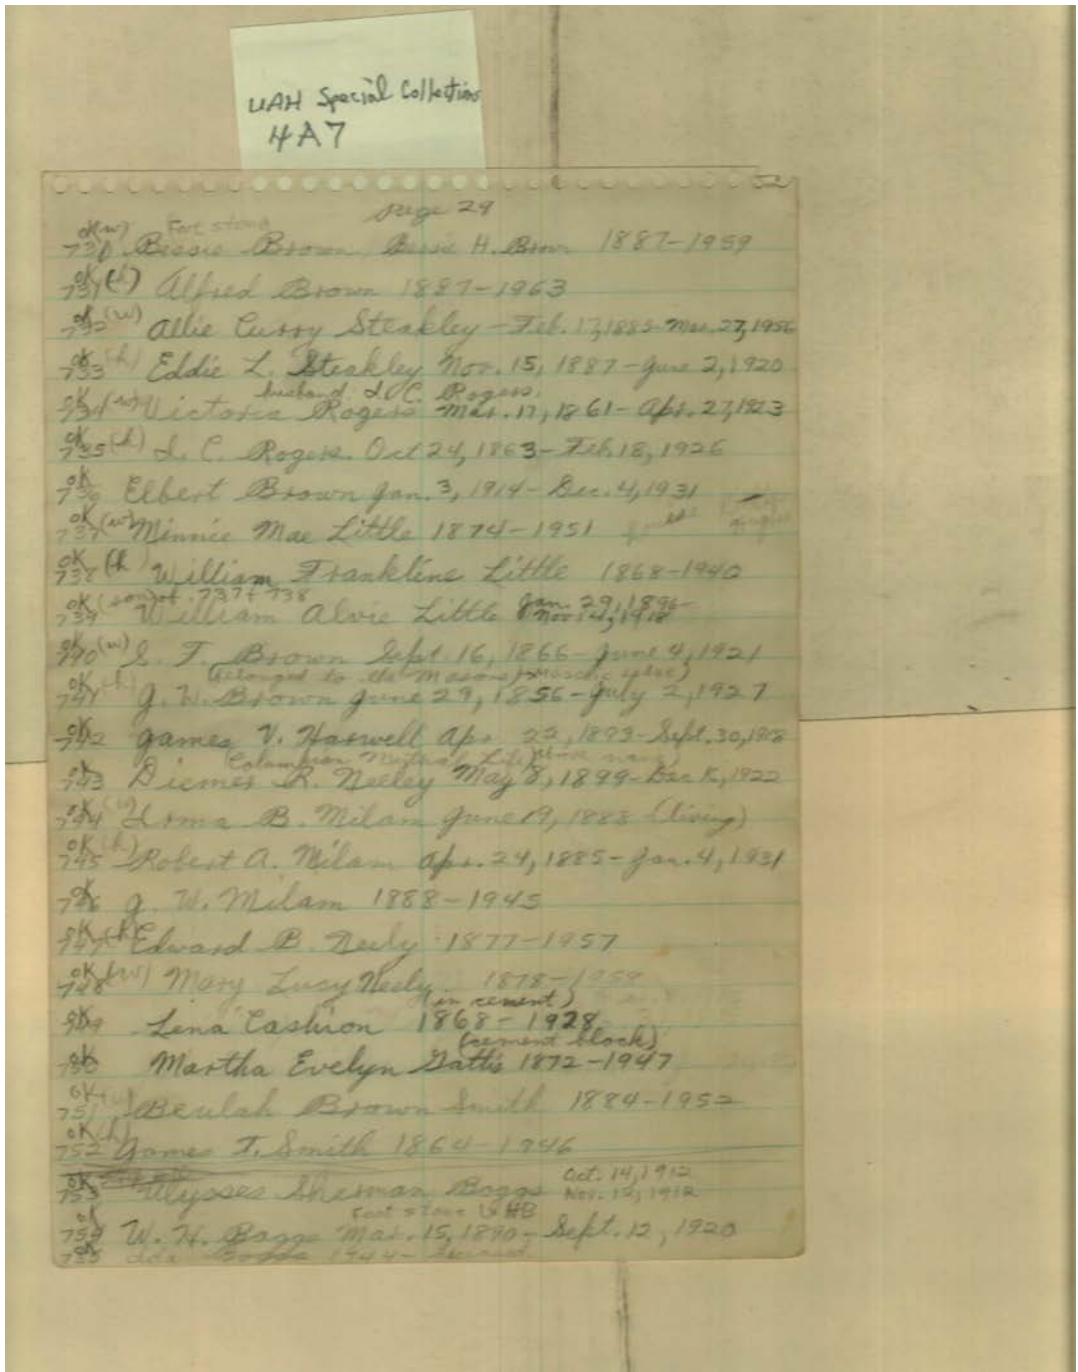 UAH Special Collections
4A7
52
Page 29
ok(w) Foot stone
730 Bessie Brown Bessie H. Brown 1887-1959
ok
731 (h) Alfred Brown 1887-1963
ok
732 (w) Allie Curry Steakley - Feb. 17, 1885- Mar. 27, 1956
ok
733 (h) Eddie L. Steakley Nov. 15, 1887 - June 2, 1920
husband I. C. Rogers
ok
734 (w) Victoria Rogers Mar. 17, 1861 - Apr. 27, 1923
ok
735 (h) I. C. Rogers Oct 24, 1863 - Feb. 18, 1926
ok
736 Elbert Brown Jan. 3, 1914 - Dec. 4, 1931
ok
737 (w) Minnie Mae Little 1874-1951
ok
738 (h) William Frankline Little 1868-1940
ok (son of 737 + 738
739 William Alvie Little Jan. 29, 1896-
Nov. 4, 1918
ok
740 (w) S. F. Brown Sept. 16, 1866 - June 4, 1921
(Belonged to the Masons)
ok
741 (h) G. W. Brown June 29, 1856 - July 2, 1927
ok
742 James V. Harwell Apr. 22, 1893 - Sept. 30, 1918
(Columbian Mutual Life)
ok
743 Diemer R. Neeley May 8, 1899 - Dec 15, 1922
ok
744 (w) Erma B. Milam June 19, 1888 (living)
ok
745 (h) Robert A. Milam Apr. 24, 1885 - Jan. 4, 1931
ok
746 G. W. Milam 1888-1945
ok
747 (h) Edward B. Neely 1877-1957
ok
748 (w) Mary Lucy Neely 1878-1958
(in cement)
ok
749 Lena Cashion 1868-1928
(cement block)
ok
750 Martha Evelyn Gattis 1872-1947
ok
751 (w) Beulah Brown Smith 1884-1952
ok
752 (h) James T. Smith 1864-1946
ok
753 Ulysses Sherman Boggs Oct. 14, 1912
Nov. 12, 1912
Foot stone WHB
ok
754 W. H. Boggs Mar. 15, 1890 - Sept. 12, 1920
ok
755 Ida Boggs 1944-